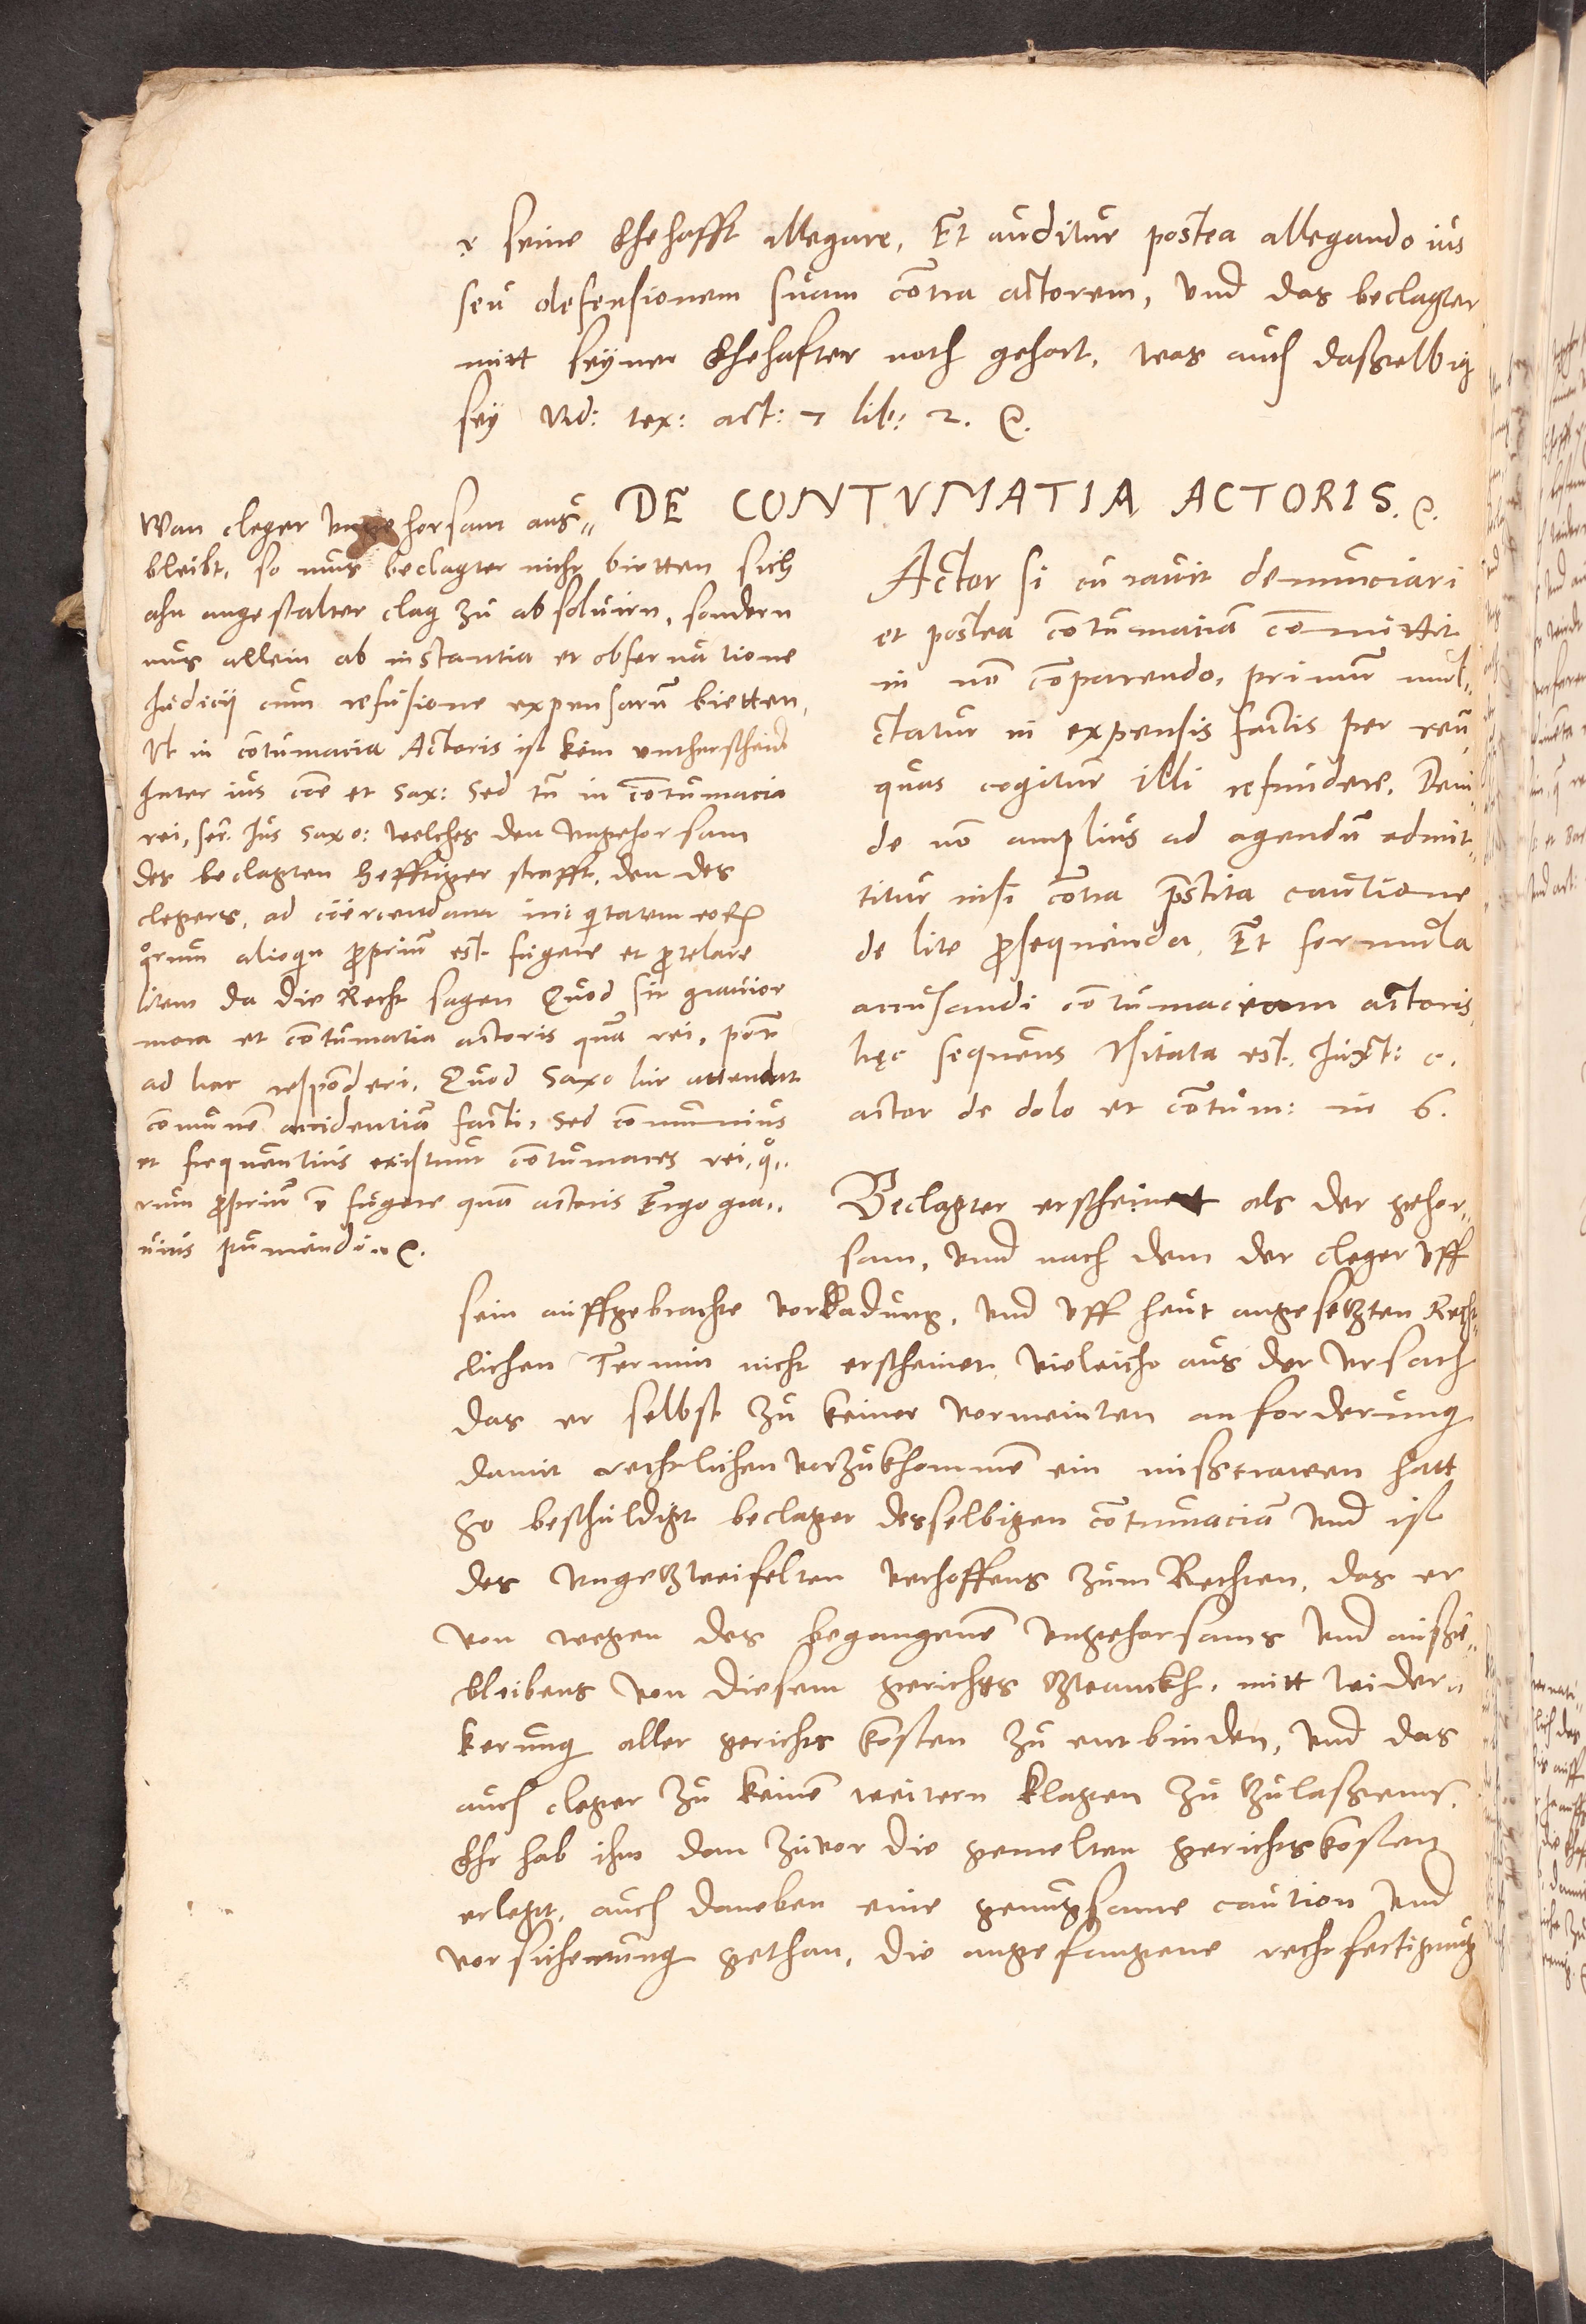 seine Ehehafft allegare, Et auditur postea allegando ius
seu defensionem suam cōtra actorem, und das beclagter
mitt seyner Ehehafter noth gehort, was auch dasselbig
sey vid: tex: act: 7 lib: 2. &.
DE CONTVMATIA ACTORIS. &.
Wan cleger ungehorsam aus„
bleibt, so mus beclagter nicht bietten sich
ahn angestalter clag zu absoluirn, sondern
mus allein ab instantia et obseruatione
Judicij cum refusione expensarū bietten,
Vt in cōtumacia Actoris ist kein untherscheidt
Inter ius cōe et Sax: Sed tn̄ in cōtumacia
rei, Jus Saxo: welches den ungehorsam
des beclagten hefftiger strafft, den des
clegers, ad coercendam iniquitatem eorū
quorum alioqui propriū est fugere et protelare
litem da die Recht sagen Quod sit grauior
mora et cōtumatia actoris quā rei,
ad hac respōderi, Quod Saxo iur attendat
cōmunē accidentiā facti, Sed cōmunius
et frequentius existunt cōtumaces rei, quo„
rum propriū ē fugere quā actoris Ergo gra„
uius puniendi. &.
Actor si curauit denunciari
et postea cōtumaciā cōmittit
in nō cōparendo, primum mul„
ctatur in expensis factis per reū,
quas cogitur illi refundere, Dein„
de nō amplius ad agendū admit„
titur nisi cōtra prestita cautione
de lite prosequenda, Et formula
accusandi cōtumaciam actoris,
hęc sequens Vsitata est. Juxt: c.
actor de dolo et cōtum: in 6.
Beclagter erscheinett als der gehor„
sam, und nach dem der cleger uff
sein auffgebrachte vorladung, und uff heut angesetzten Recht„
lichen Termin nicht erscheinet, vieleicht aus der ursach
das er selbst zu keiner vormeinten anforderung
damit rechtlichen vorzukhommē ein missetrawen hatt
So beschuldigt beclager desselbigen cōtumaciā und ist
des ungezweifelten verhoffens zum Rechten, das er
von wegen des begangenē ungehorsams und aussē„
bleibens von diesem gerichts zwanckh, mitt wider„
kerung aller gerichts kosten zu entbinden, und das
auch cleger zu keinē weitern klagen zu zulassenn,
Ehr hab ihm dan zuvor die gemelten gerichtskosten
erlegt, auch daneben eine genugsame caution und
vorsicherung gethan, die angefangene rechtfertigung